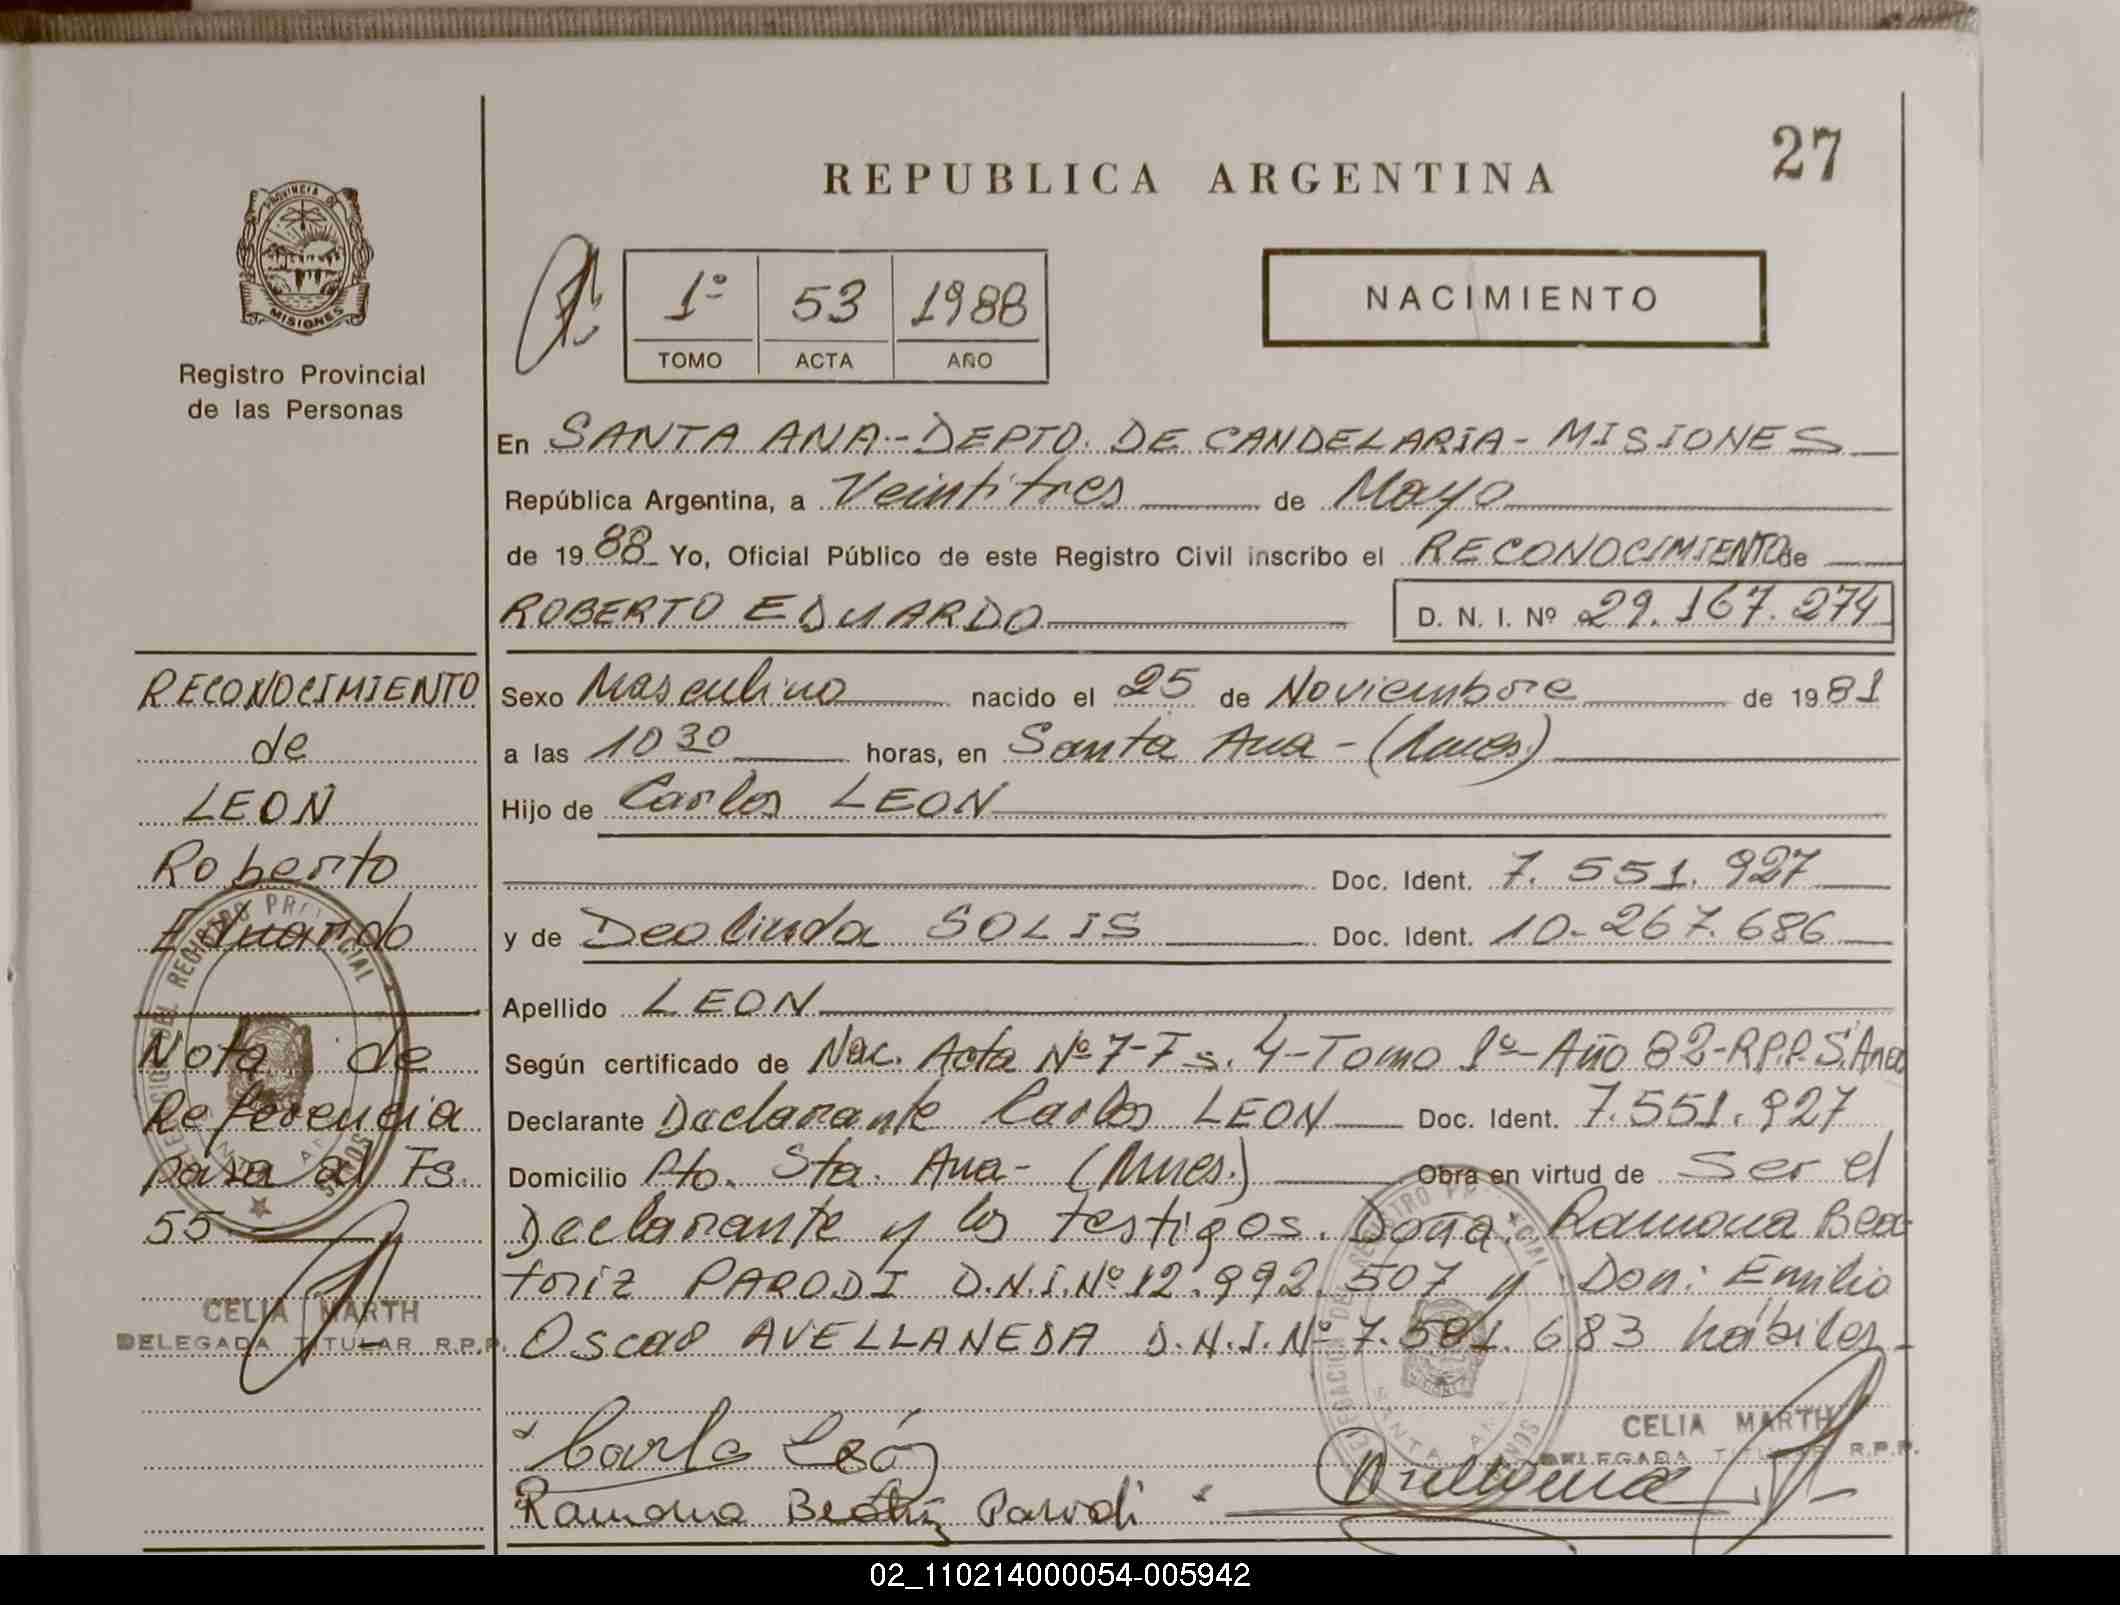 27
REPUBLICA ARGENTINA
PROVINCIA DE
MISIONES
Registro Provincial
de las Personas
1º 53 1988
TOMO ACTA AÑO
NACIMIENTO
En SANTA ANA.-DEPTO. DE CANDELARIA - MISIONES
República Argentina, a Veintitres de Mayo
de 1988 Yo, Oficial Público de este Registro Civil inscribo el RECONOCIMIENTO de
ROBERTO EDUARDO D. N. I. Nº 29.167.274
Sexo Masculino nacido el 25 de Noviembre de 1981
a las 10 30 horas, en Santa Ana - (Mnes.)
Hijo de Carlos LEON
Doc. Ident. 7.551.927
y de Deolinda SOLIS Doc. Ident. 10-267.686
Apellido LEON
Según certificado de Nac. Acta Nº 7-Fs. 4-Tomo 1º-Año 82-R.P.P. S. Ana
Declarante Declarante Carlos LEON Doc. Ident. 7.551.927
Domicilio Pto. Sta. Ana - (Mnes.) Obra en virtud de Ser el
Declarante y los testigos. Doña. Ramona Bea-
triz PARODI D.N.I.Nº 12.992.507 y Don: Emilio
Oscar AVELLANEDA D.N.I.Nº 7.581.683 hábiles.-
RECONOCIMIENTO
de
LEON
Roberto
Eduardo
Nota de
Referencia
para al Fs.
55
CELIA MARTH
DELEGADA TITULAR R.P.P.
Carlo León
CELIA MARTH
DELEGADA TITULAR R.P.P.
Ramona Beatriz Parodi
02_110214000054-005942